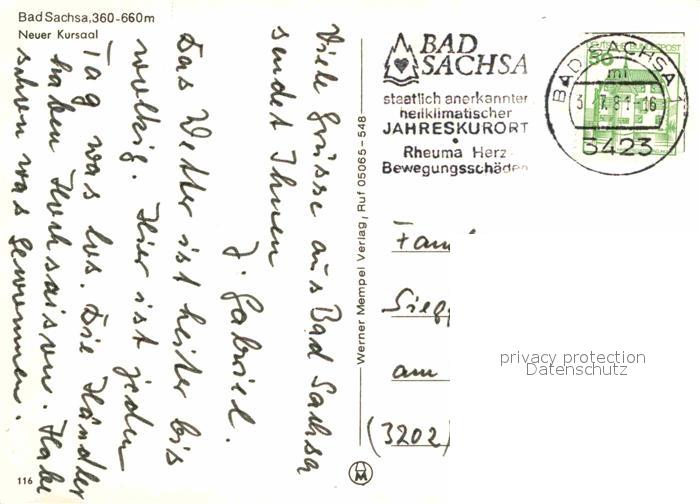 Bad Sachsa, 360-660m
Neuer Kursaal
Viele Grüsse aus Bad Sachsa
sendet Ihnen
J. Gabriel.
Das Wetter ist heiter bis
wolkig. Hier ist jeden
Tag was los. Die Händler
haben Hochsaison. Habe
schon was gewonnen.
116
Werner Mempel Verlag, Ruf 05065-548
BAD
SACHSA
staatlich anerkannter
heilklimatischer
JAHRESKURORT
Rheuma Herz
Bewegungsschäden
DEUTSCHE BUNDESPOST
50
BAD SACHSA 1
mf
3. 7.81-16
3423
Fam
Siepp
am
(3202)
privacy protection
Datenschutz